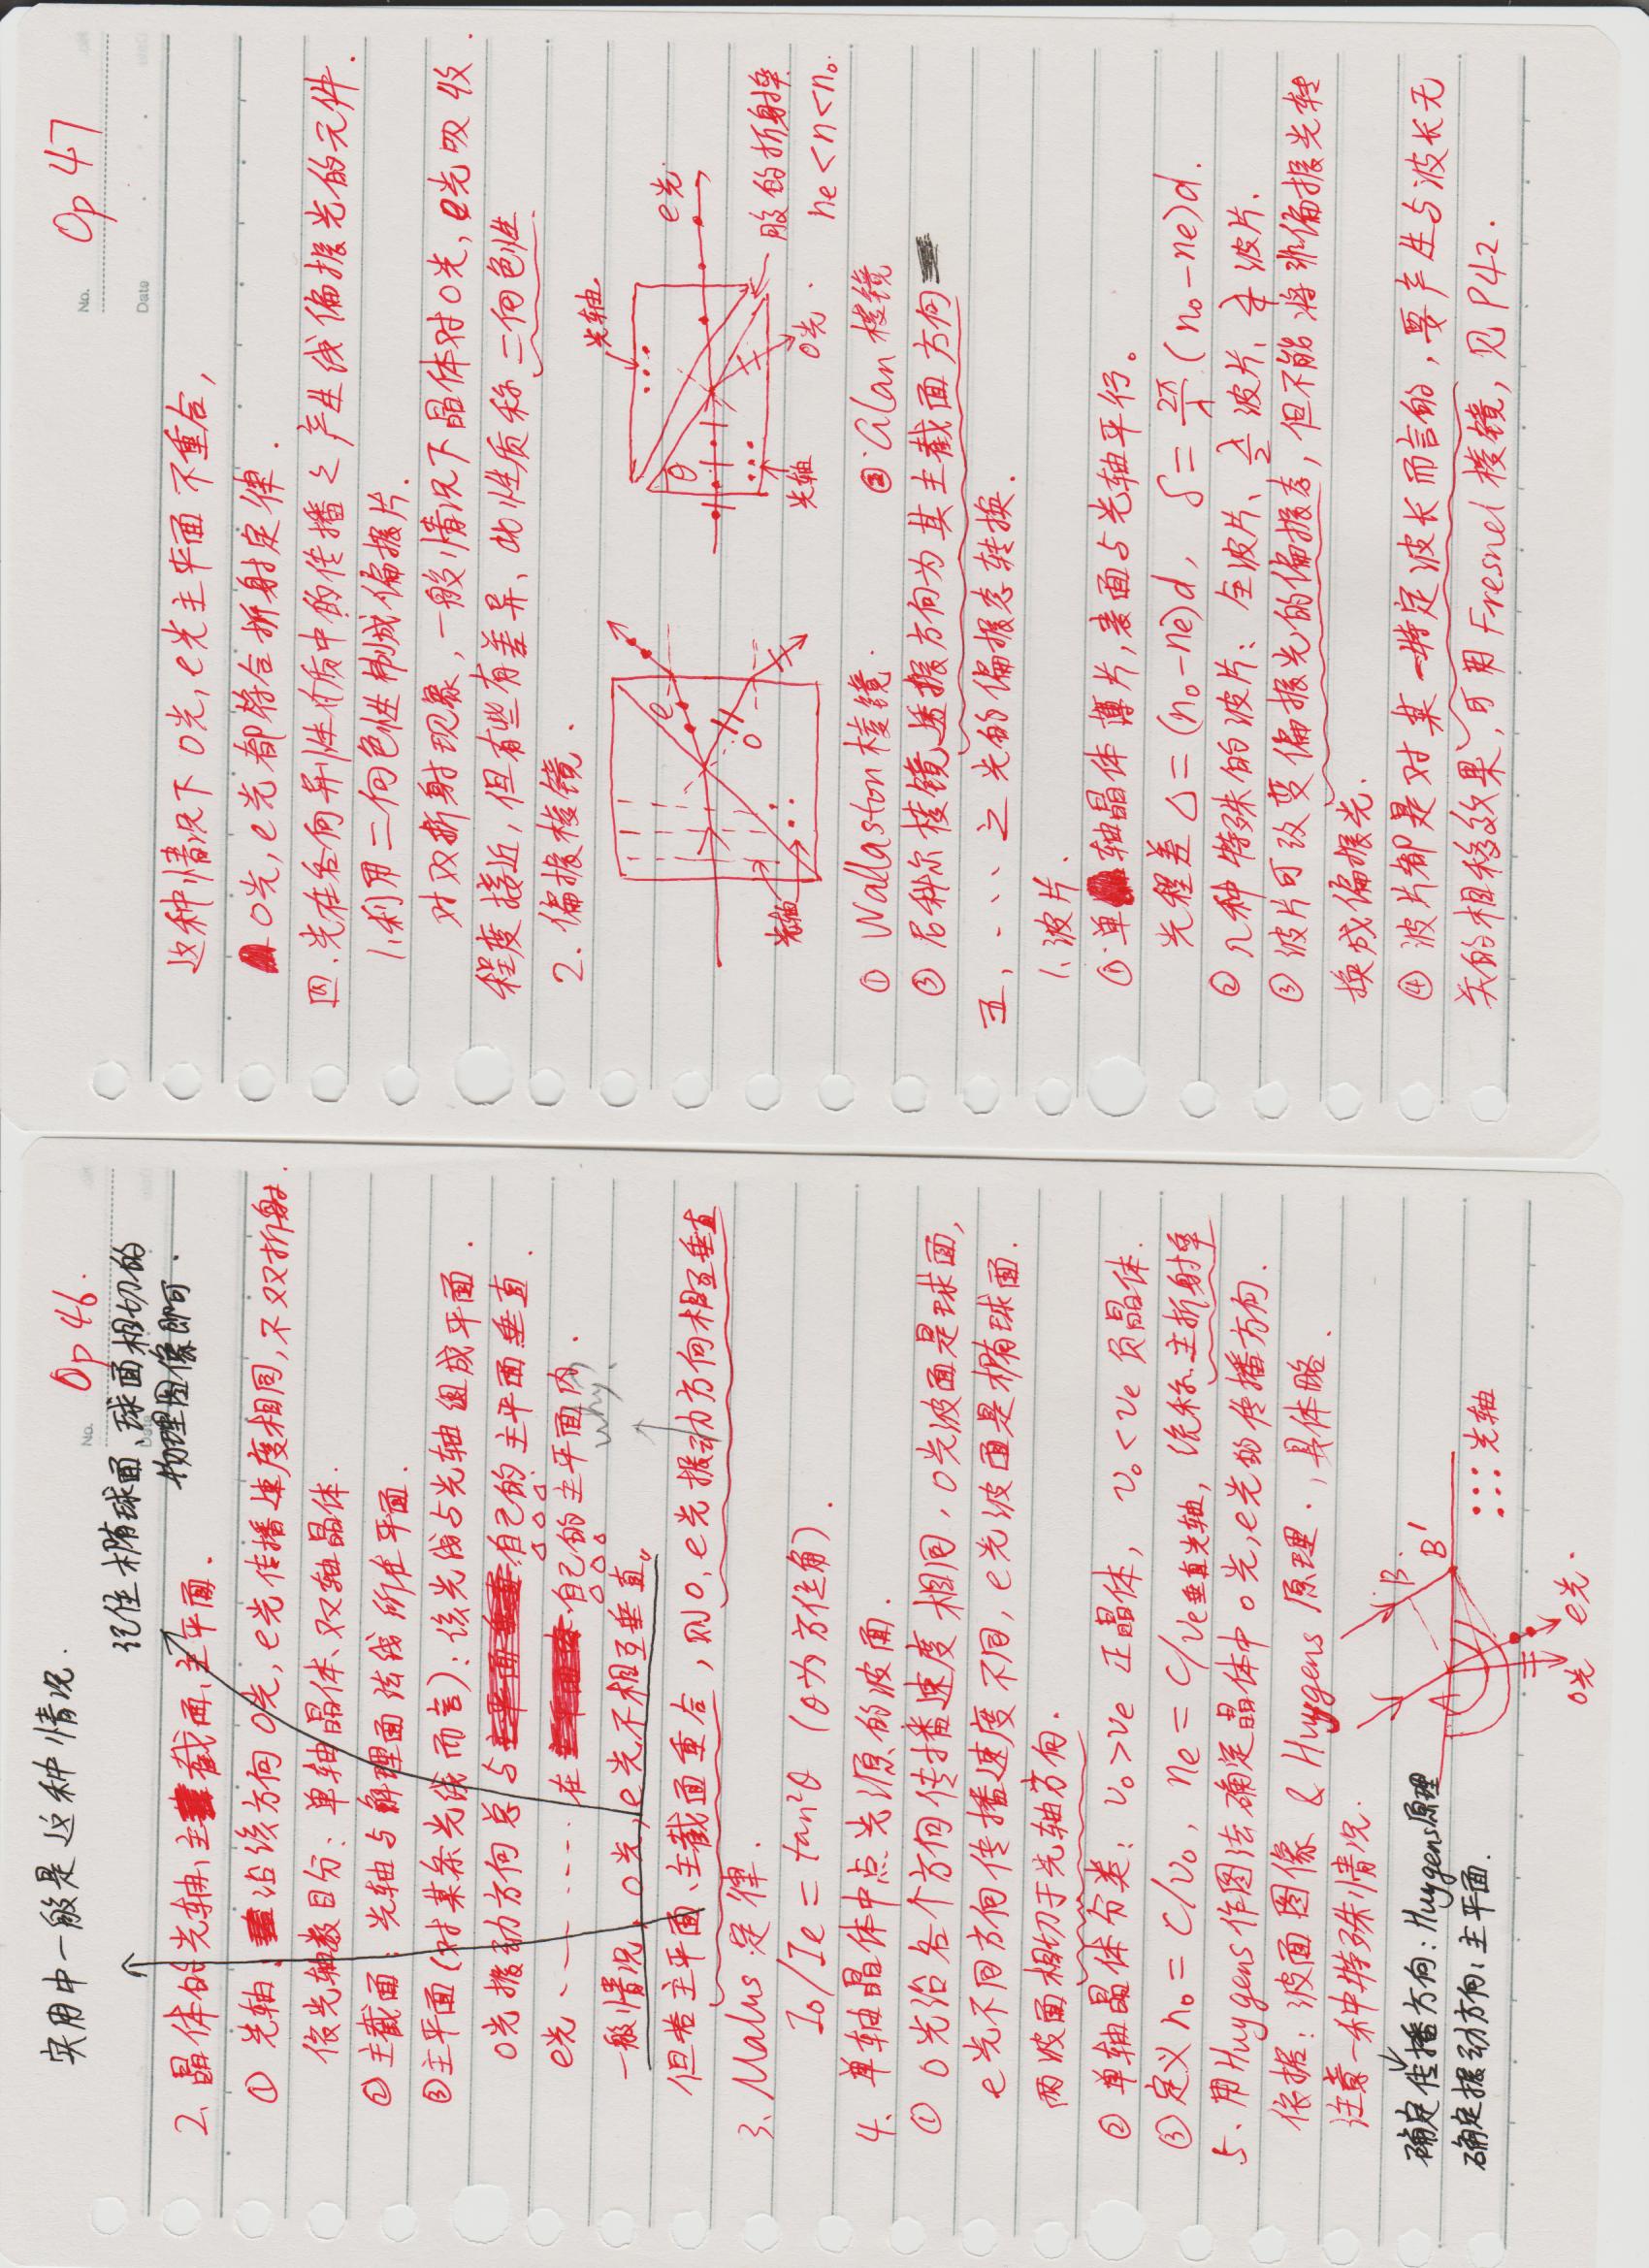 实用中一般是这种情况.
Op 46.
记住椭球面、球面相切的
物理图像即可.
2、晶体的光轴、主截面、主平面.
① 光轴:沿该方向o光,e光传播速度相同,不双折射.
依光轴数目分:单轴晶体、双轴晶体.
②主截面:光轴与解理面法线所在平面.
③主平面(对某条光线而言):该光线与光轴组成平面.
o光振动方向总与自己的主平面垂直.
e光 - — - --- 在自己的主平面内.
why?
一般情况,o光,e光不相互垂直。
但若主平面、主截面重合,则o,e光振动方向相互垂直
3、Malus 定律.
Io/Ie = tan²θ (θ为方位角).
4、单轴晶体中点光源的波面.
① o光沿各个方向传播速度相同,o光波面是球面,
e光不同方向传播速度不同,e光波面是椭球面.
两波面相切于光轴方向.
② 单轴晶体分类:vo>ve 正晶体, vo<ve 负晶体.
③定义no = c/vo, ne = c/ve垂直光轴, 统称主折射率
5、用Huygens作图法确定晶体中o光,e光的传播方向.
依据:波面图像 & Huygens 原理.,具体略.
注意一种特殊情况.
确定传播方向:Huygens原理
确定振动方向:主平面.
A
B.
B'
光轴
o光
e光.
No.
Date
Op 47
这种情况下 o光,e光主平面不重合,
o光,e光都符合折射定律.
四、光在各向异性介质中的传播之产生线偏振光的元件.
1、利用二向色性制成偏振片.
对双折射现象,一般情况下晶体对o光,e光吸收
程度接近,但有些有差异、此性质称二向色性.
2、偏振棱镜.
e
o
光轴
光轴
θ
e光.
光轴
o光.
胶的折射率
ne<n<no.
① Wallaston棱镜.
② Glan棱镜
③ 尼科尔棱镜透振方向为其主截面方向
五、... 之光的偏振态转换.
1、波片.
①单轴晶体薄片,表面与光轴平行。
光程差 Δ=(no-ne)d, δ=2π/λ (no-ne)d.
② 几种特殊的波片:全波片、λ/2 波片、λ/4 波片.
③ 波片可改变偏振光的偏振态,但不能将非偏振光转
换成偏振光.
④ 波片都是对某一特定波长而言的,要产生与波长无
关的相移效果,可用Fresnel棱镜,见P42.